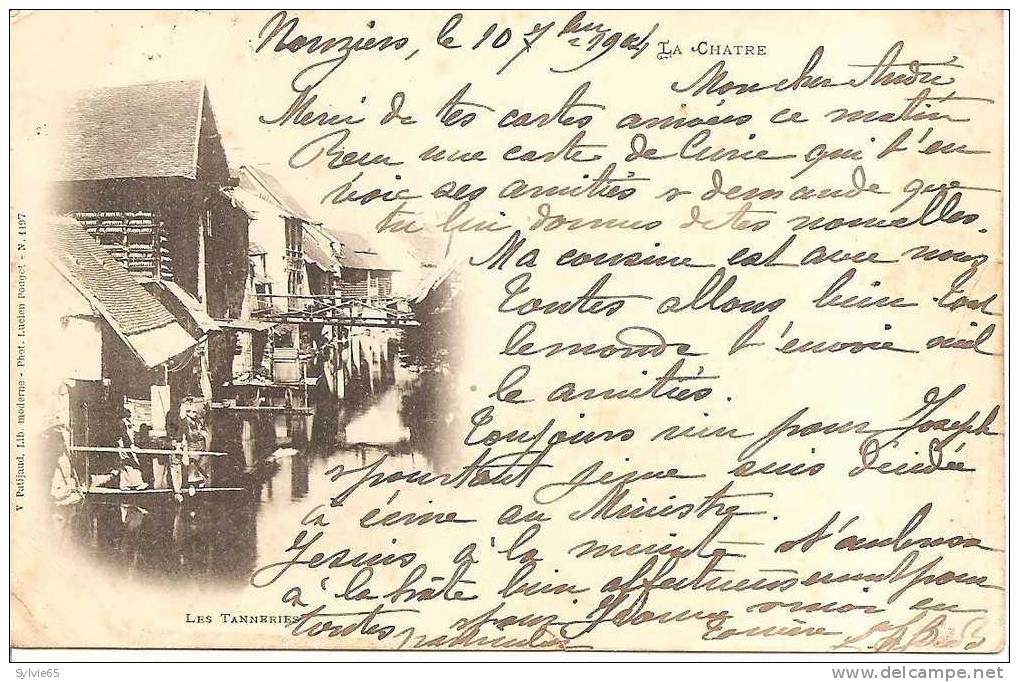 Nouziers, le 10 7bre 1904
LA CHATRE
Mon cher André
Merci de tes cartes arrivées ce matin
Reçu une carte de Cirice qui t'en
voie ses amitiés & demande que
tu lui donnes de tes nouvelles.
Ma cousine est avec nous
toutes allons bien tout
le monde t'envoie mil
le amitiés.
Toujours rien pour Joseph
pourtant je me suis décidée
à écrire au Ministre.
Je suis à la minute & t'embrasse
à la hâte bien affectueusement pour
toutes pour Jeanne
particulier
LES TANNERIES
V Patijaud, Lib. moderne - Phot. Lucien Pouget - N. 1197
Sylvie65
http://www.delcampe.net